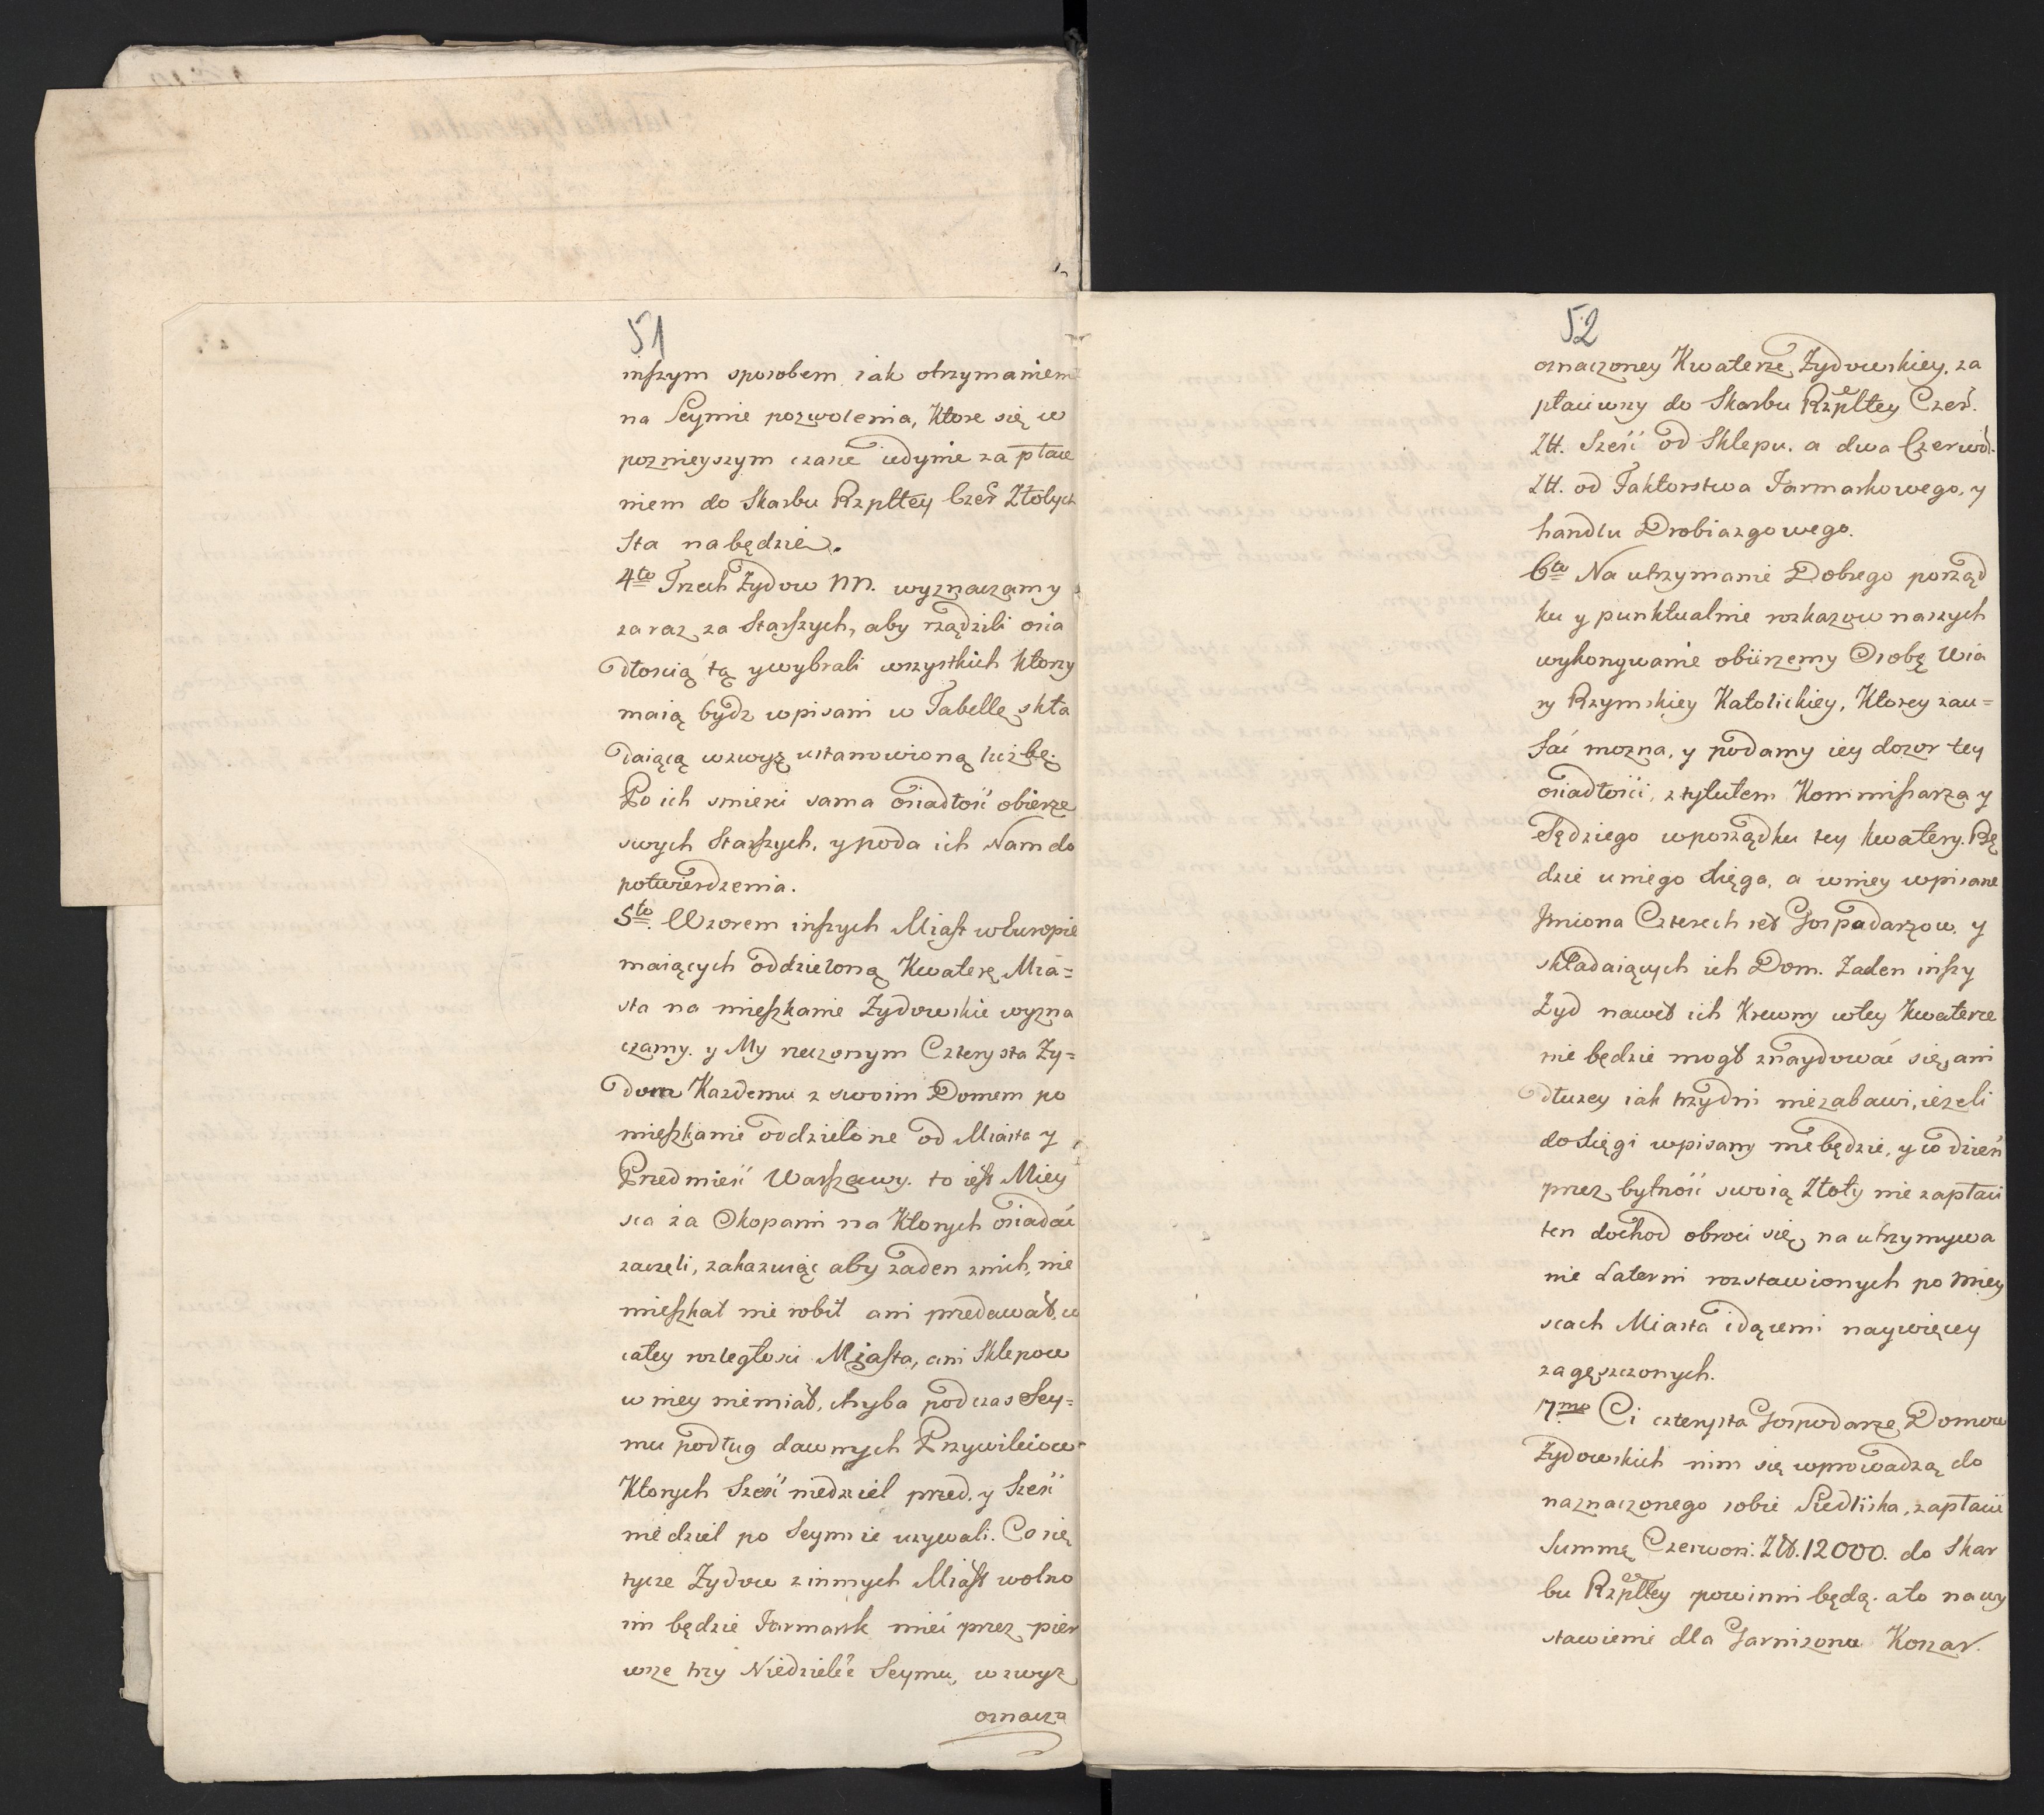 51
inszym sposobem iak otrzymaniem
na Seymie pozwolenia, Ktore się w
poznieyszym czasie iedynie za płace
niem do Skarbu Rzpltey Czer Złotych
Sta nabędzie.
4to Trzech Zydow NN. wyznaczamy
zaraz za Starszych, aby rządzili osia
dłoscią tą y wybrali wszystkich ktorzy
maią bydz wpisani w Tabellę skła
daiącą wzwyż ustanowioną liczbę.
Po ich smierci sama osiadłosć obierze
swych Starszych, y poda ich Nam do
potwierdzenia.
5to. Wzorem inszych Miast w Europie
maiących oddzieloną Kwaterę Mia=
sta na mieszkanie Zydowskie wyzna
czamy. y My rzeczonym Czterysta Zy=
dom Kazdemu z swoim Domem po
mieszkanie oddzielone od Miasta y
Przedmiesć Warszawy. to iest Miey
sca za Okopami na Ktorych osiadać
zaczęli, zakazuiąc aby zaden znich, nie
mieszkał nie robił ani przedawał, w
całey rozległosci Miasta, ani Sklepow
w niey niemiał, chyba podczas Sey=
mu podług dawnych Przywileiow
Ktorych Szesć niedziel przed, y Szesć
niedziel po Seymie uzywali. Co się
tycze Zydow z innych Miast wolno
im będzie Jarmark mieć przez pier
wsze trzy Niedziele Seymu, w zwyz
oznacza
52
oznaczoney Kwaterze Zydowskiey, za
płaciwszy do Skarbu Rzpltey Czer.
Złł. Szesć od Sklepu. a dwa Czerwo.
Złł. od Faktorstwa Jarmarkowego, y
handlu Drobiazgowego.
6to Na utrzymanie Dobrego porząd
ku y punktualnie rozkazow naszych
wykonywanie obierzemy Osobę Wia
ry Rzymskiey Katolickiey, Ktorey zau=
fać mozna, y podamy iey dozor tey
osiadłosci, z tytułem Kommissarza y
Sędziego w porządku tey kwatery. Bę
dzie u niego xięga, a w niey wpisane
Jmiona Czterech set Gospadarzow, y
składaiących ich Dom. Zaden inszy
Zyd nawet ich Krewny w tey Kwaterze
nie będzie mogł znaydować się, ani
dłuzey iak trzy dni niezabawi, iezeli
do xięgi wpisany nie będzie, y co dzień
przez bytnosć swoią Złoty nie zapłaci
ten dochod obroci się na utrzymywa
nie Latern rozstawionych po Miey
scach Miasta idącemi naywięcey
zagęszczonych.
7mo Ci czterysta Gospodarze Domow
Zydowskich nim się wprowadzą do
naznaczonego sobie Siedliska, zapłacić
Summę Czerwon: Złł. 12000. do Skar
bu Rzpltey powinni będą. a to na wy
stawienie dla Garnizonu Koszar.